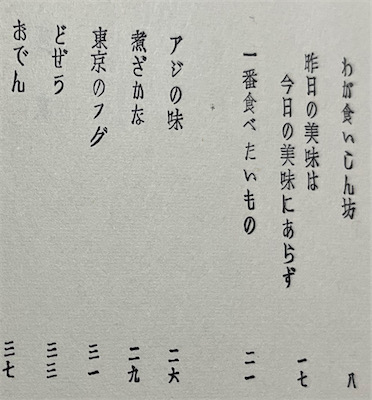 わが食いしん坊
八
昨日の美味は
今日の美味にあらず
一七
一番食べたいもの
二一
アジの味
二六
煮ざかな
二九
東京のフグ
三一
どぜう
三三
おでん
三七